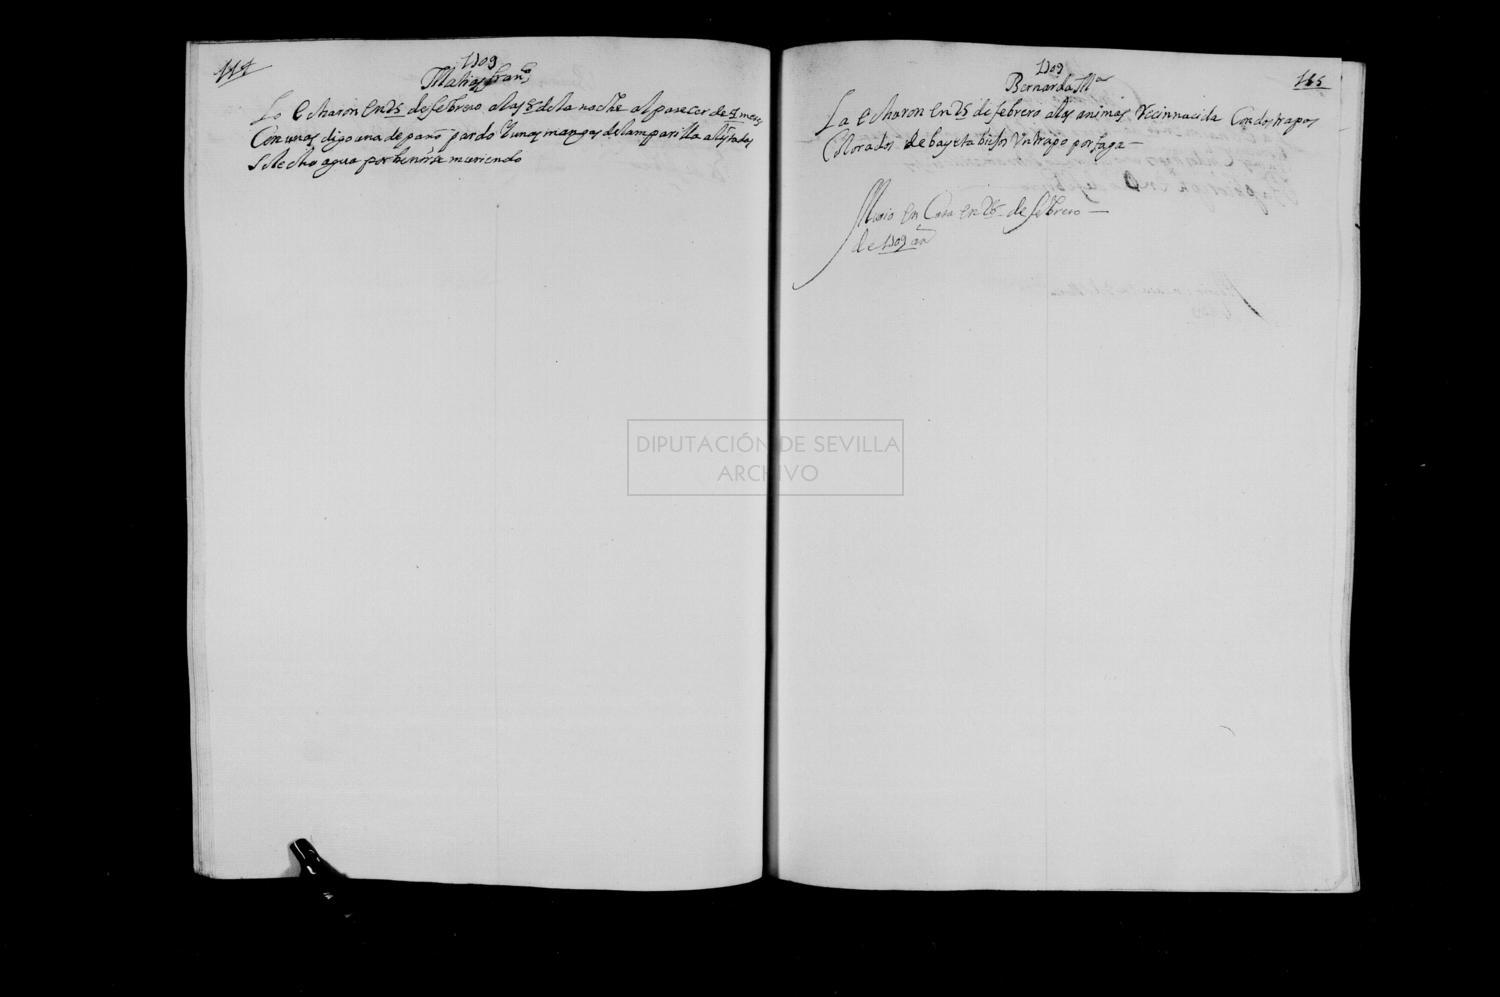 114
1709
Matias franco
Lo echaron en 25 de febrero a las 8 de la noche al parecer de 4 meses
Con unas digo una de paño pardo y unas mangas de lamparilla alistadas
Se le echo agua por benir se muriendo
1709
Bernarda Ma
115
La echaron en 25 de febrero a las animas Recinnacida Con dos trapos
Colorados de bayeta biejos Un trapo por faja
Murio en Casa en 26 de febrero
de 1709 an
DIPUTACIÓN DE SEVILLA
ARCHIVO